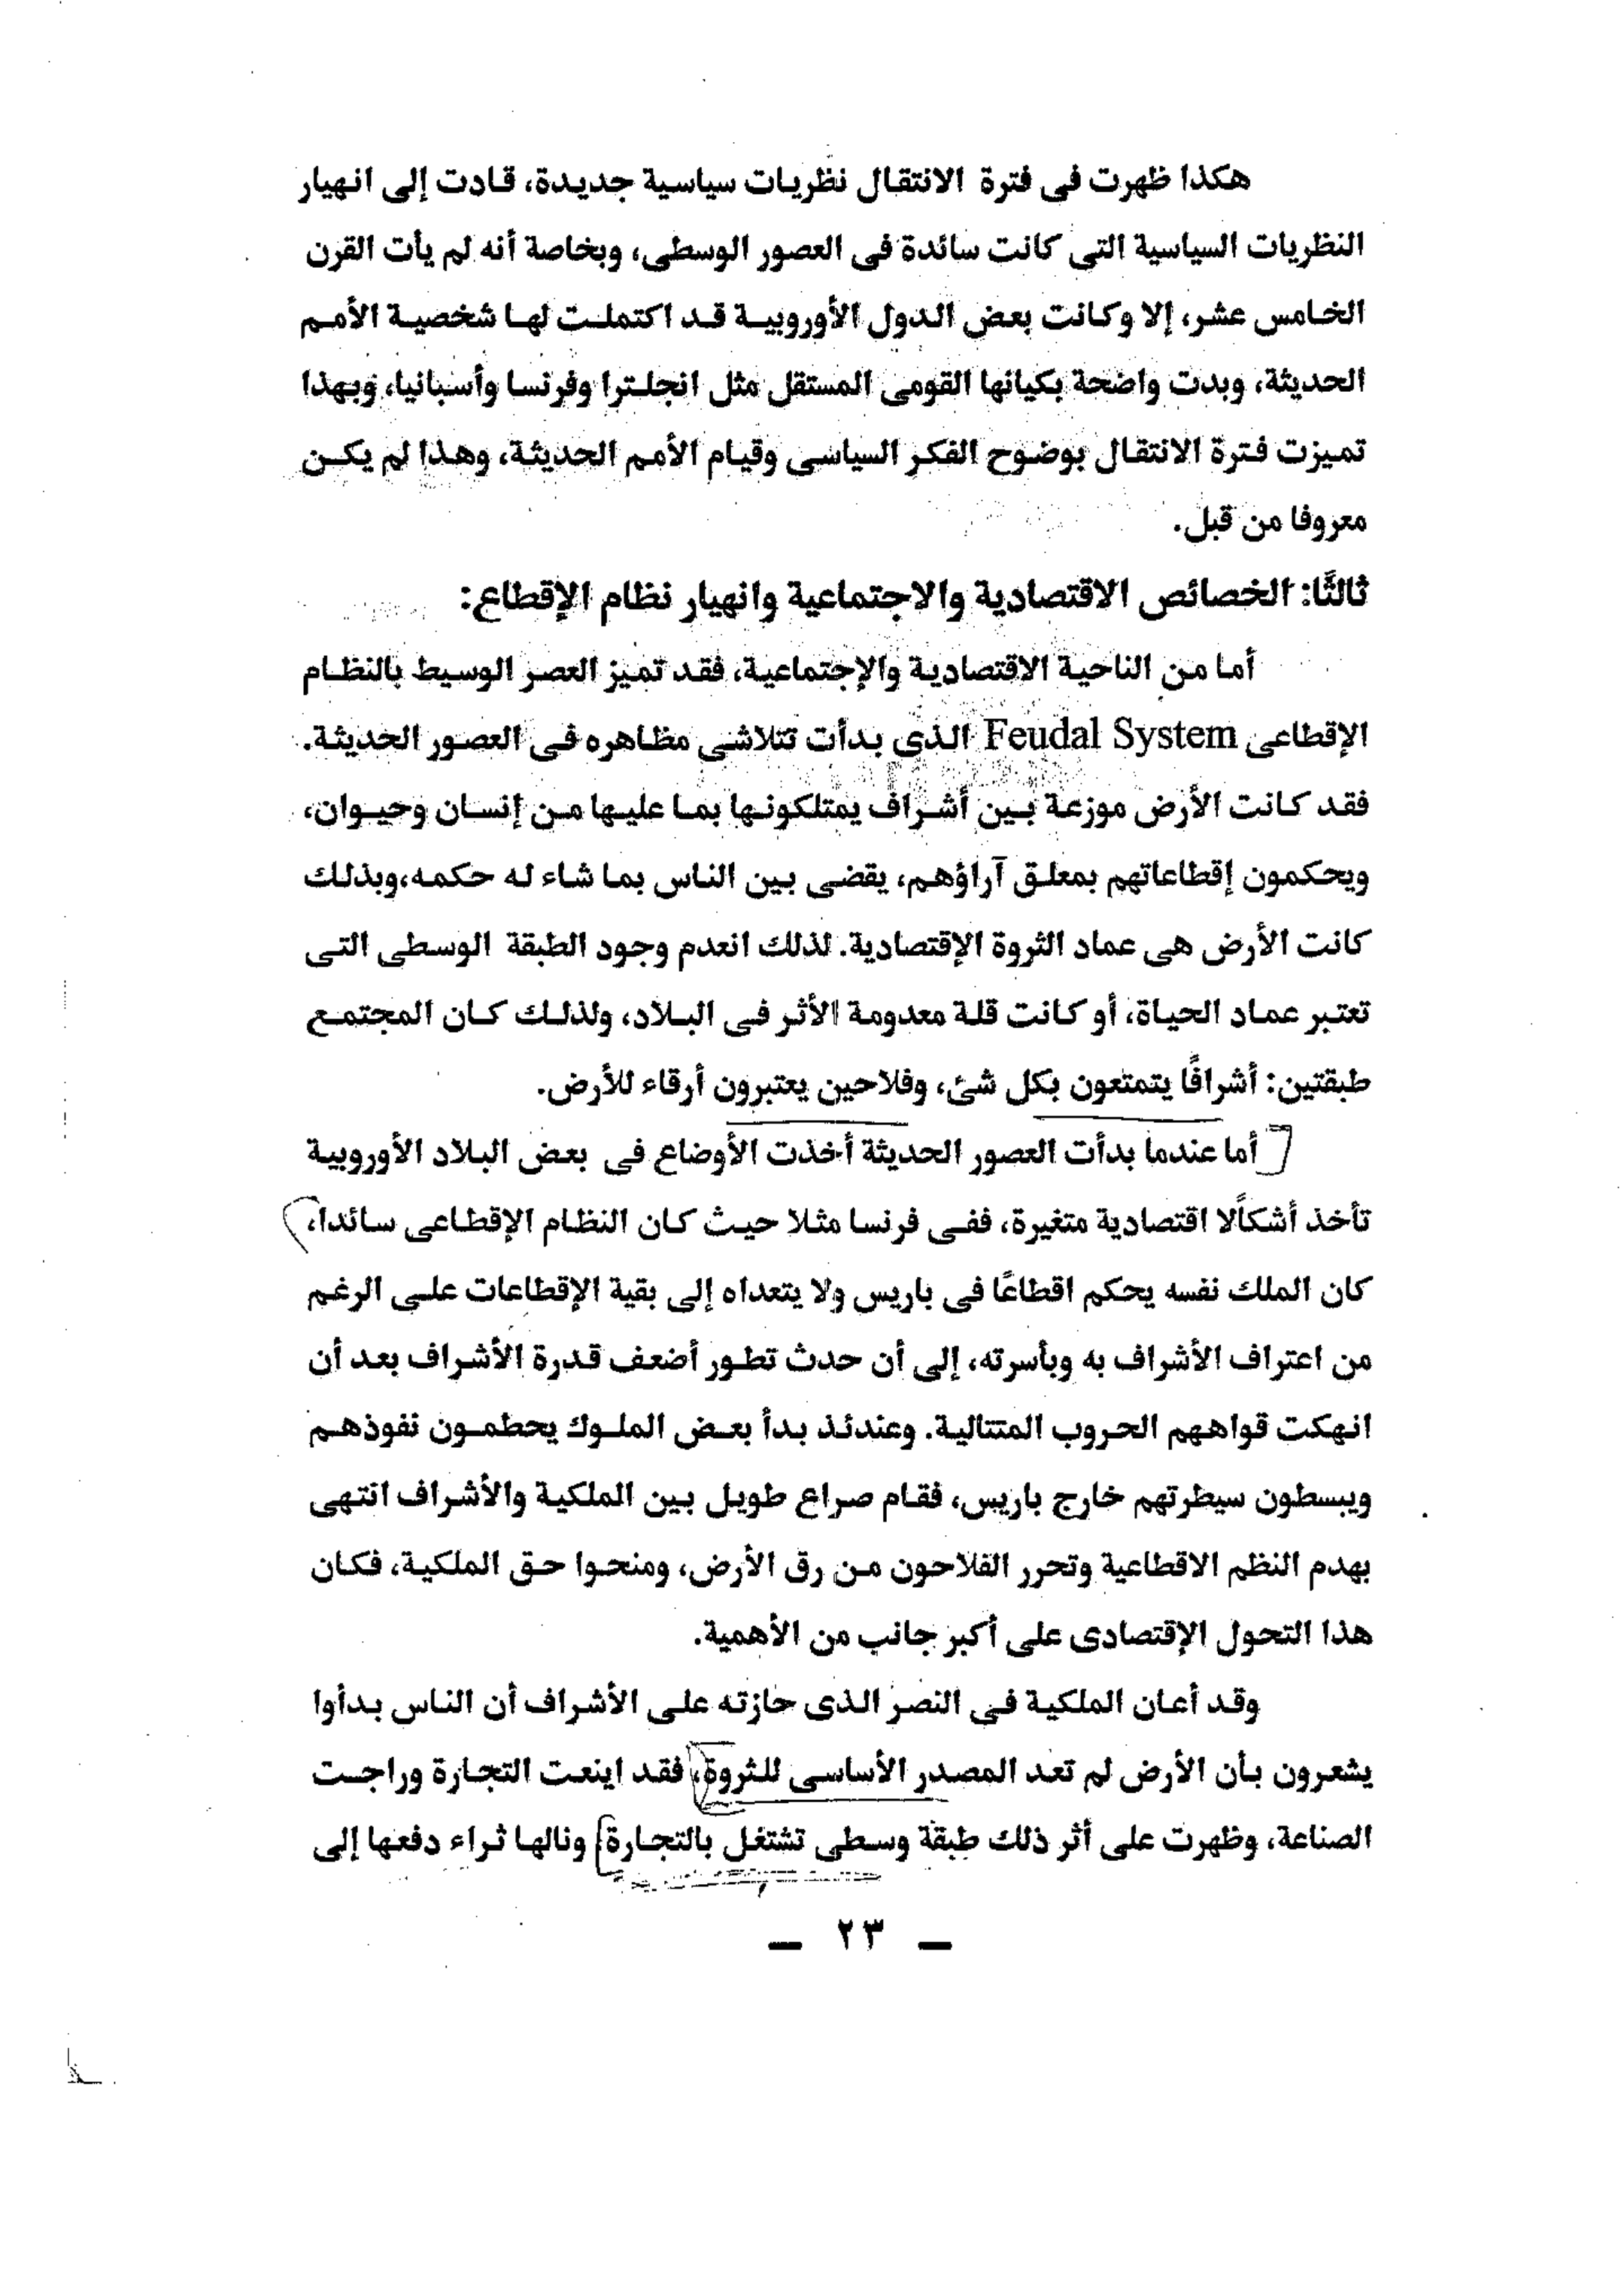 هكذا ظهرت فى فترة الانتقال نظريات سياسية جديدة، قادت إلى انهيار
النظريات السياسية التى كانت سائدة فى العصور الوسطى، وبخاصة أنه لم يأت القرن
الخامس عشر، إلا وكانت بعض الدول الأوروبية قد اكتملت لها شخصية الأمم
الحديثة، وبدت واضحة بكيانها القومى المستقل مثل انجلترا وفرنسا وأسبانيا، وبهذا
تميزت فترة الانتقال بوضوح الفكر السياسى وقيام الأمم الحديثة، وهذا لم يكن
معروفا من قبل.
ثالثًا: الخصائص الاقتصادية والاجتماعية وانهيار نظام الإقطاع:
أما من الناحية الاقتصادية والإجتماعية، فقد تميز العصر الوسيط بالنظام
الإقطاعى Feudal System الذى بدأت تتلاشى مظاهره فى العصور الحديثة.
فقد كانت الأرض موزعة بين أشراف يمتلكونها بما عليها من إنسان وحيوان،
ويحكمون إقطاعاتهم بمعلق آراؤهم، يقضى بين الناس بما شاء له حكمه،وبذلك
كانت الأرض هى عماد الثروة الإقتصادية. لذلك انعدم وجود الطبقة الوسطى التى
تعتبر عماد الحياة، أو كانت قلة معدومة الأثر فى البلاد، ولذلك كان المجتمع
طبقتين: أشرافًا يتمتعون بكل شئ، وفلاحين يعتبرون أرقاء للأرض.
أما عندما بدأت العصور الحديثة أخذت الأوضاع فى بعض البلاد الأوروبية
تأخذ أشكالًا اقتصادية متغيرة، ففى فرنسا مثلا حيث كان النظام الإقطاعى سائدا،
كان الملك نفسه يحكم اقطاعًا فى باريس ولا يتعداه إلى بقية الإقطاعات على الرغم
من اعتراف الأشراف به وبأسرته، إلى أن حدث تطور أضعف قدرة الأشراف بعد أن
انهكت قواههم الحروب المتتالية. وعندئذ بدأ بعض الملوك يحطمون نفوذهم
ويبسطون سيطرتهم خارج باريس، فقام صراع طويل بين الملكية والأشراف انتهى
بهدم النظم الاقطاعية وتحرر الفلاحون من رق الأرض، ومنحوا حق الملكية، فكان
هذا التحول الإقتصادى على أكبر جانب من الأهمية.
وقد أعان الملكية فى النصر الذى حازته على الأشراف أن الناس بدأوا
يشعرون بأن الأرض لم تعد المصدر الأساسى للثروة، فقد اينعت التجارة وراجت
الصناعة، وظهرت على أثر ذلك طبقة وسطى تشتغل بالتجارة ونالها ثراء دفعها إلى
— ٢٣ —